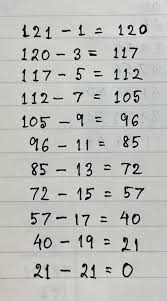 121 - 1 = 120
120 - 3 = 117
117 - 5 = 112
112 - 7 = 105
105 - 9 = 96
96 - 11 = 85
85 - 13 = 72
72 - 15 = 57
57 - 17 = 40
40 - 19 = 21
21 - 21 = 0